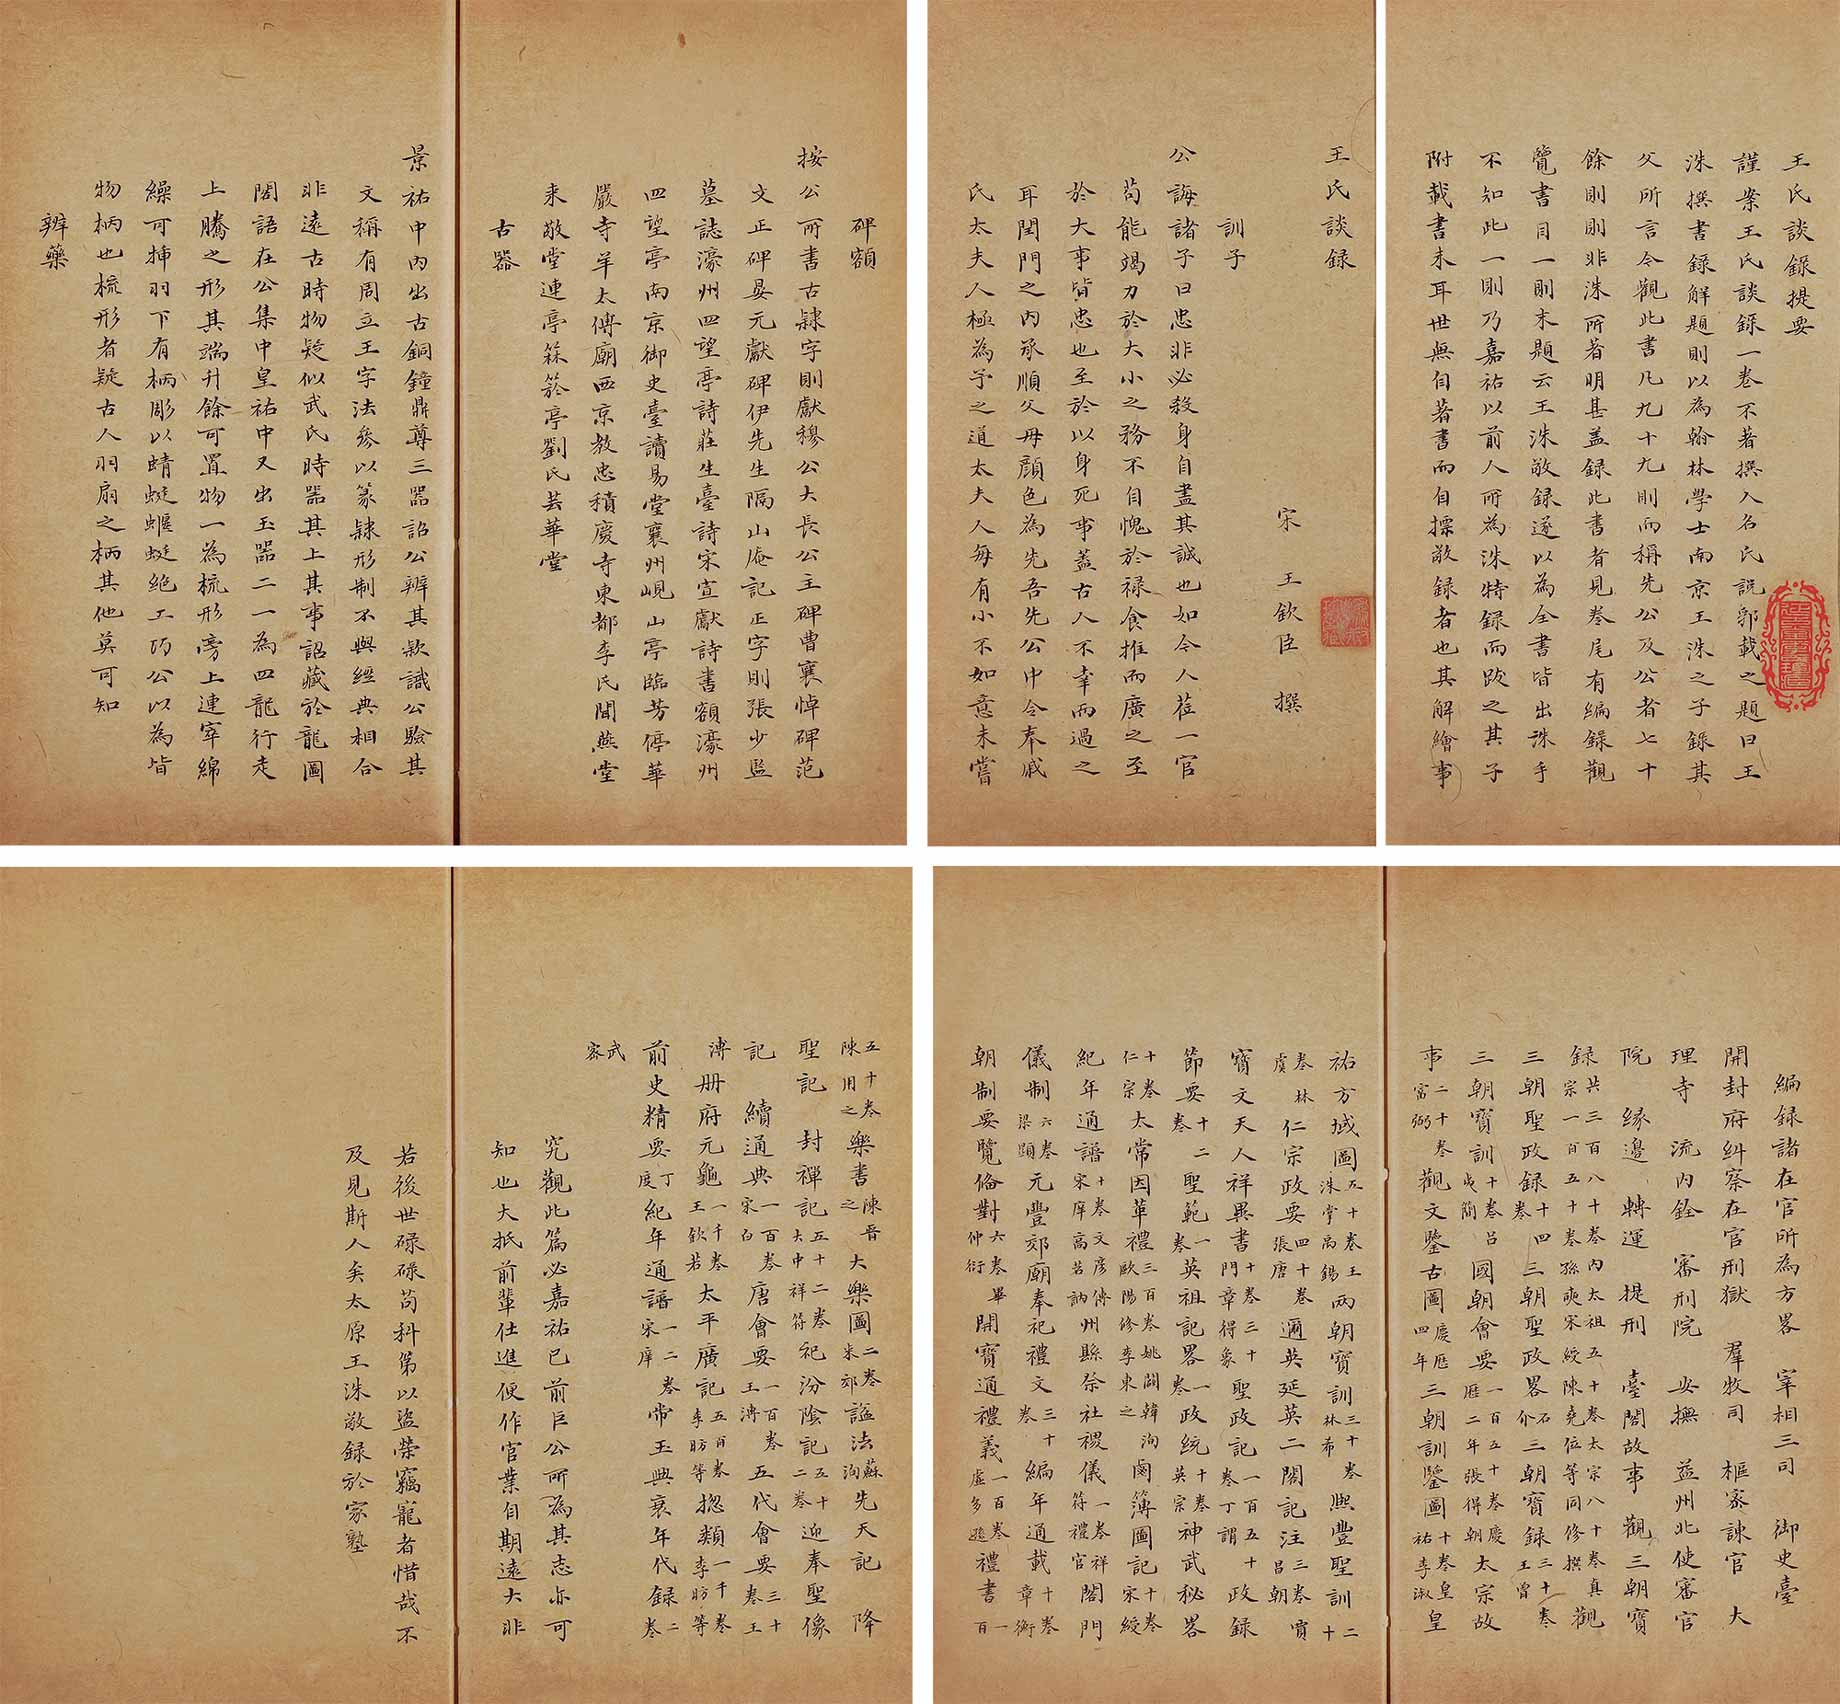 王氏談録提要
謹案王氏談録一卷不著撰人名氏説郛載之題曰王
洙撰書録解題則以為翰林學士南京王洙之子録其
父所言今觀此書凡九十九則而稱先公及公者七十
餘則則非洙所著明甚盖録此書者見卷尾有編録觀
覽書目一則末題云王洙敬録遂以為全書皆出洙手
不知此一則乃嘉祐以前人所為洙特録而跋之其子
附載書末耳世無自著書而自標敬録者也其解繪事
王氏談録
宋 王欽臣 撰
訓子
公誨諸子曰忠非必殺身自盡其誠也如今人莅一官
苟能竭力於大小之務不自愧於禄食推而廣之至
於大事皆忠也至於以身死事蓋古人不幸而遇之
耳閨門之内承順父母顔色為先吾先公中令奉戚
氏太夫人極為子之道太夫人每有小不如意未嘗
碑額
按公所書古隸字則獻穆公大長公主碑曹襄悼碑范
文正碑晏元獻碑伊先生隔山庵記正字則張少監
墓誌濠州四望亭詩莊生臺詩宋宣獻詩書額濠州
四望亭南京御史臺讀易堂襄州峴山亭臨芳停華
嚴寺羊太傅廟西京教忠積慶寺東都李氏閒燕堂
来敬堂連亭篠箊亭劉氏芸華堂
古器
景祐中内出古銅鐘鼎尊三器詔公辨其欵識公驗其
文稱有周立王字法參以篆隸形制不與經典相合
非遠古時物疑似武氏時器其上其事詔藏於龍圖
閣語在公集中皇祐中又出玉器二一為四龍行走
上騰之形其端升餘可置物一為梳形旁上連窂綿
繰可揷羽下有柄彫以蜻蜓蝘蜓絶工巧公以為皆
物柄也梳形者疑古人羽扇之柄其他莫可知
辨藥
編録諸在官所為方畧 宰相三司 御史臺
開封府糾察在官刑獄 羣牧司 樞密諫官 大
理寺 流内銓 審刑院 安撫 益州北使審官
院 縁邊 轉運 提刑 臺閣故事 觀三朝寳
録共三百八十卷内太祖五十卷太宗八十卷真宗一百五十卷孫奭宋綬陳堯位等同修撰觀
三朝聖政録十四卷三朝聖政畧石介三朝寳録三十卷王曾
三朝寳訓十卷吕夷簡國朝會要一百五十卷慶歴二年張得朝太宗故
事二十卷富弼觀文鑒古圖慶歴四年三朝訓鑒圖十卷皇祐李淑皇
祐方域圖五十卷王洙掌禹錫兩朝寳訓三十卷林希熙豐聖訓二十
卷林虞仁宗政要四十卷張唐邇英延英二閣記注三卷賈昌朝
寳文天人祥異書十卷三十門章得象聖政記一百五十卷丁謂政録
節要十二卷聖範一卷英祖記畧一卷政統十卷英宗神武秘畧
十卷仁宗太常因革禮三百卷姚闢韓洵歐陽修李東之鹵簿圖記十卷宋綬
紀年通譜十卷文彦博宋庠高若訥州縣祭社禝儀一卷祥符禮官閤門
儀制六卷梁顥元豐郊廟奉祀禮文三十卷編年通載十卷章衡
朝制要覽俻對六卷畢仲衍開寳通禮義一百卷盧多遜禮書一百
五十卷陳用之樂書陳晋之大樂圖二卷宋郊諡法蘇洵先天記 降
聖記 封禪記五十二卷大中祥符祀汾隂記五十二卷迎奉聖像
記 續通典一百卷宋白唐會要一百卷王溥五代會要三十卷王
溥册府元龜一千卷王欽若太平廣記五百卷李昉等捴類一千卷李昉等
前史精要丁度紀年通譜一二卷宋庠帝王典衰年代録二卷
武密
究觀此篇必嘉祐已前巨公所為其志亦可
知也大抵前輩仕進便作官業自期遠大非
若後世碌碌苟科第以盗榮竊寵者惜哉不
及見斯人矣太原王洙敬録於家塾